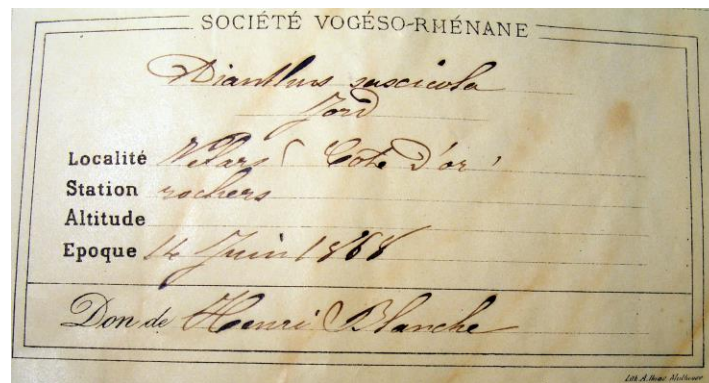 SOCIÉTÉ VOGÉSO-RHÉNANE
Dianthus saxicola
Jord
Localité Velars (Cote d'or)
Station rochers
Altitude
Epoque 14 Juin 1868
Don de Henri Blanche
Lith. A.